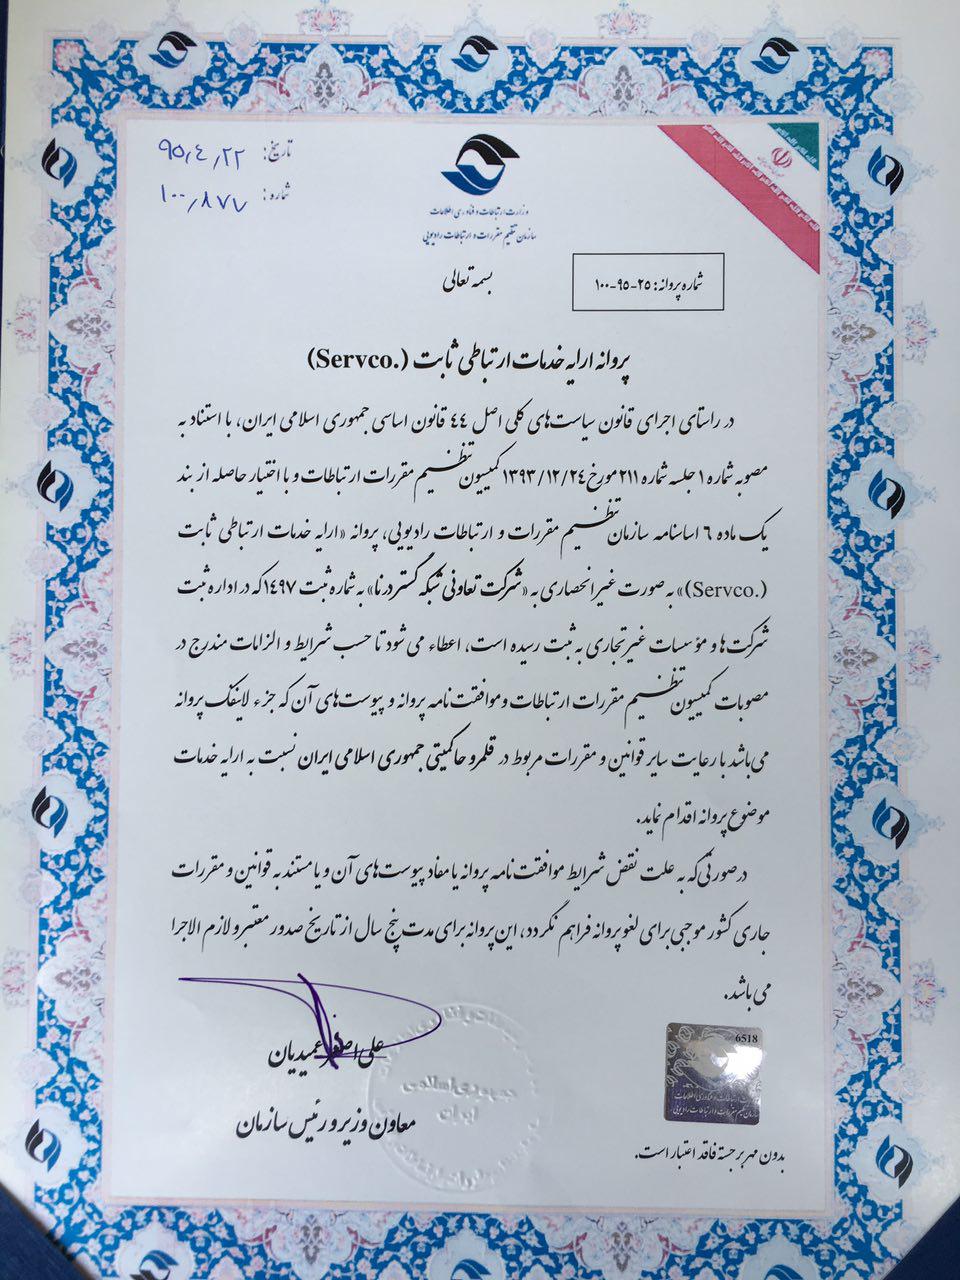 تاریخ: ۹۵,۴,۲۲
شماره: ۱۰۰,۸۷۷
وزارت ارتباطات و فناوری اطلاعات
سازمان تنظیم مقررات و ارتباطات رادیویی
بسمه تعالی
شماره پروانه: ۲۵-۹۵-۱۰۰
پروانه ارایه خدمات ارتباطی ثابت (Servco.)
در راستای اجرای قانون سیاست‌های کلی اصل ۴۴ قانون اساسی جمهوری اسلامی ایران، با استناد به
مصوبه شماره ۱ جلسه شماره ۲۱۱ مورخ ۱۳۹۳/۱۲/۲۴ کمیسیون تنظیم مقررات ارتباطات و با اختیار حاصله از بند
یک ماده ۶ اساسنامه سازمان تنظیم مقررات و ارتباطات رادیویی، پروانه «ارایه خدمات ارتباطی ثابت
(Servco.)» به صورت غیر انحصاری به «شرکت تعاونی شبکه گستر درنا» به شماره ثبت ۱۴۹۷ که در اداره ثبت
شرکت ها و مؤسسات غیر تجاری به ثبت رسیده است، اعطاء می شود تا حسب شرایط و الزامات مندرج در
مصوبات کمیسیون تنظیم مقررات ارتباطات و موافقت نامه پروانه و پیوست‌های آن که جزء لاینفک پروانه
می باشد با رعایت سایر قوانین و مقررات مربوط در قلمرو حاکمیتی جمهوری اسلامی ایران نسبت به ارایه خدمات
موضوع پروانه اقدام نماید.
در صورتی که به علت نقض شرایط موافقت نامه پروانه یا مفاد پیوست‌های آن و یا مستند به قوانین و مقررات
جاری کشور موجبی برای لغو پروانه فراهم نگردد، این پروانه برای مدت پنج سال از تاریخ صدور معتبر و لازم الاجرا
می باشد.
علی اصغر عمیدیان
معاون وزیر و رئیس سازمان
جمهوری اسلامی
ایران
6518
سازمان تنظیم مقررات و ارتباطات رادیویی
بدون مهر برجسته فاقد اعتبار است.